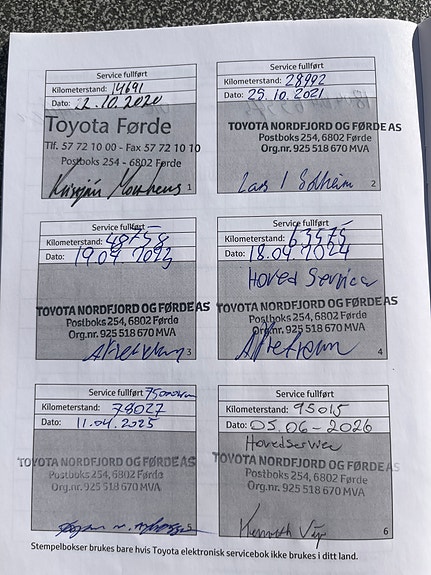 Service fullført
Kilometerstand: 14691
Dato: 22.10.2020
Toyota Førde
Tlf. 57 72 10 00 - Fax 57 72 10 10
Postboks 254 - 6802 Førde
1
Service fullført
Kilometerstand: 28992
Dato: 25.10.2021
TOYOTA NORDFJORD OG FØRDE AS
Postboks 254, 6802 Førde
Org.nr. 925 518 670 MVA
Lars I Solheim
2
Service fullført
Kilometerstand: 48758
Dato: 19.04.2023
TOYOTA NORDFJORD OG FØRDE AS
Postboks 254, 6802 Førde
Org.nr. 925 518 670 MVA
3
Service fullført
Kilometerstand: 63575
Dato: 18.04.2024
Hoved Service
TOYOTA NORDFJORD OG FØRDE AS
Postboks 254, 6802 Førde
Org.nr. 925 518 670 MVA
4
Service fullført 75000km
Kilometerstand: 78027
Dato: 11.04.2025
TOYOTA NORDFJORD OG FØRDE AS
Postboks 254, 6802 Førde
Org.nr. 925 518 670 MVA
Service fullført
Kilometerstand: 95015
Dato: 05.06-2026
Hovedservice
TOYOTA NORDFJORD OG FØRDE AS
Postboks 254, 6802 Førde
Org.nr. 925 518 670 MVA
Kenneth
6
Stempelbokser brukes bare hvis Toyota elektronisk servicebok ikke brukes i ditt land.